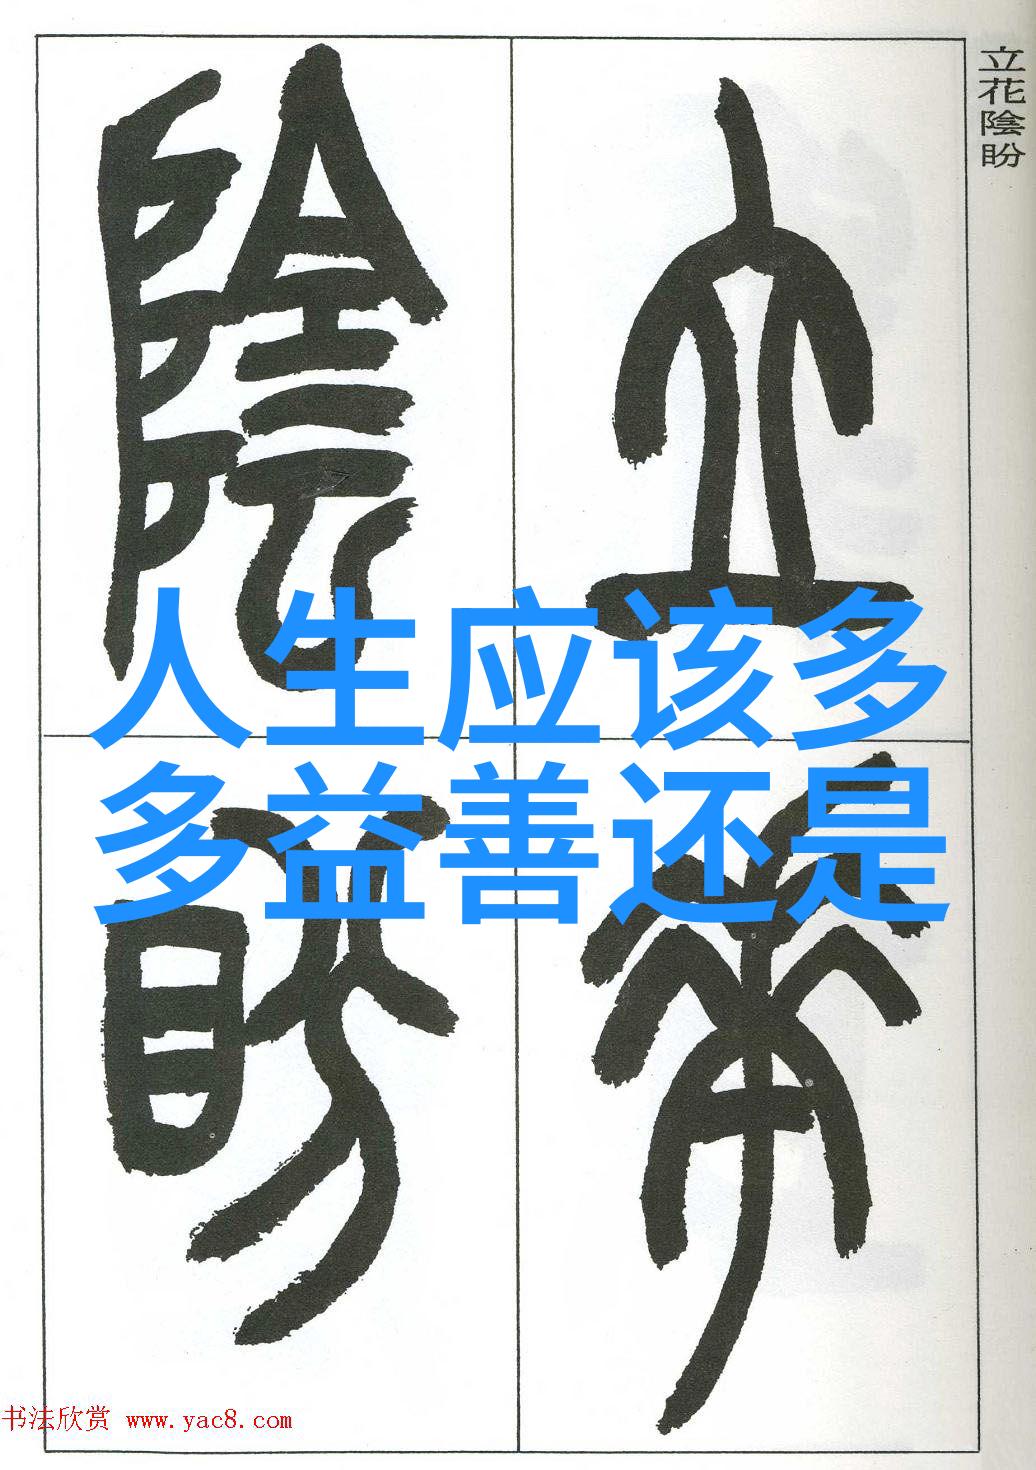 立花陰盼
立
花
陰
盼
人生应该多
多益善还是
书法欣赏 www.yac8.com